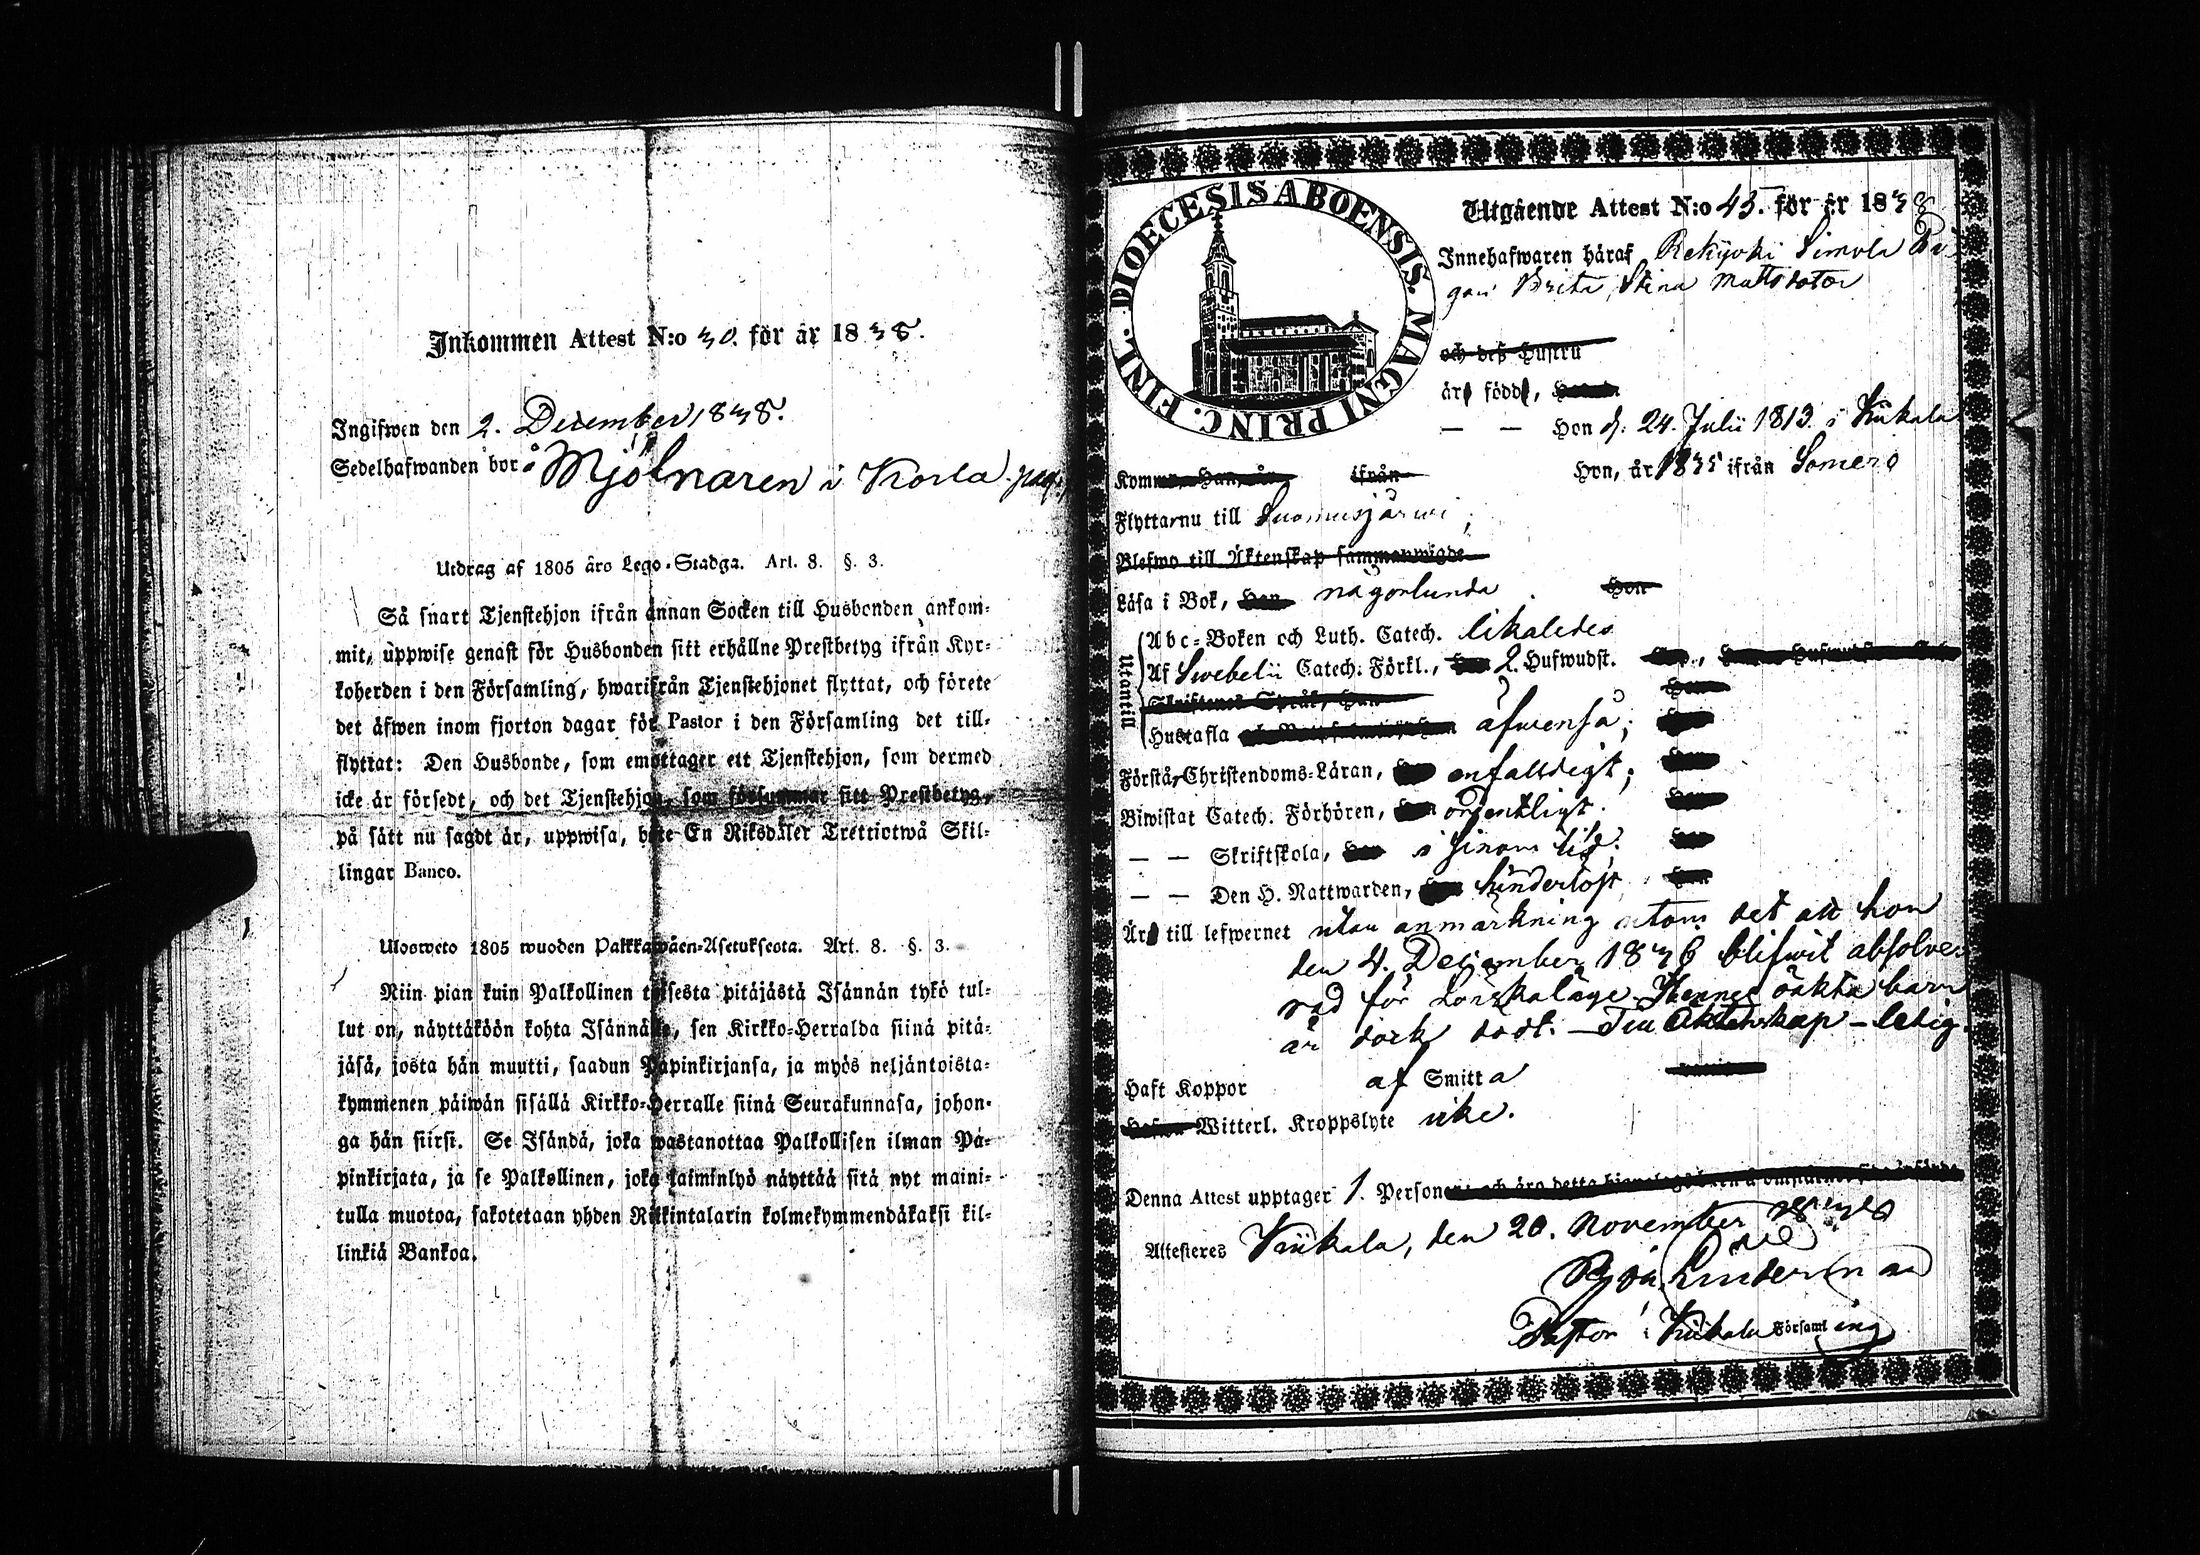 Inkommen Attest N:o 30. för år 1838.
Ingifwen den 2. December 1838.
Sedelhafwanden bor å Mjölnaren i Korla. pag.
Utdrag af 1805 års Lego-Stadga. Art. 8. §. 3.
Så snart Tjenstehjon ifrån annan Socken till Husbonden ankom-
mit, uppwise genast för Husbonden sitt erhållne Prestbetyg ifrån Kyr-
koherden i den Församling, hwarifrån Tjenstehjonet flyttat, och förete
det äfwen inom fjorton dagar för Pastor i den Församling det till-
flyttat: Den Husbonde, som emottager ett Tjenstehjon, som dermed
icke är försedt, och det Tjenstehjon, som försummar sitt Prestbetyg,
på sätt nu sagdt är, uppwisa, böte En Riksdaler Trettiotwå Skil-
lingar Banco.
Ulosweto 1805 wuoden Palkkawäen-Asetuksesta. Art. 8. §. 3.
Niin pian kuin Palkollinen toisesta pitäjästä Isännän tykö tul-
lut on, näyttäköön kohta Isännälle, sen Kirkko-Herralda siinä pitä-
jäsä, josta hän muutti, saadun Papinkirjansa, ja myös neljäntoista-
kymmenen päiwän sisällä Kirkko-Herralle siinä Seurakunnasa, johon-
ga hän siirsi. Se Isändä, joka wastanottaa Palkollisen ilman Pa-
pinkirjata, ja se Palkollinen, joka laiminlyö näyttää sitä nyt maini-
tulla muotoa, sakotetaan yhden Riikintalarin kolmekymmendäkaksi kil-
linkiä Bankoa.
FINL. DIOECESIS ABOENSIS. MAGNI PRINC.
Utgående Attest N:o 45. för år 1838
Innehafwaren häraf Rekijoki Simola Pi-
gan Brita Stina Mattsdotter
och dess Hustru
är född,
— — Hon d. 24. Julii 1813 i Kiikala
Komm Han, år ifrån Hon, år 1835 ifrån Somero
Flyttarnu till Suomusjärwi;
Blefwo till Äktenskap sammanwigde
Läsa i Bok, Han någorlunda. Hon
Utantill
Abc-Boken och Luth. Catech. likaledes
Af Swebelii Catech. Förkl., 2. Hufwudst.
Skriftenes Språk, Han
Hustafla äfwenså;
Förstår Christendoms-Läran, enfaldigt;
Biwistat Catech. Förhören, ordentligt.
— — Skriftskola, i sinom tid;
— — Den H. Nattwarden, hinderlöst
Är till lefwernet utan anmärkning utom det att hon
den 4. December 1836 blifwit absolve-
rad för Lönskaläge. Hennes oäkta barn
är dock dödt. — Till Äktenskap — ledig.
Haft Koppor af Smitta
Witterl. Kroppslyte icke.
Denna Attest upptager 1. Person
Attesteres Kiikala, den 20. November 1838
Linderman
Pastor i Kiikala Församling